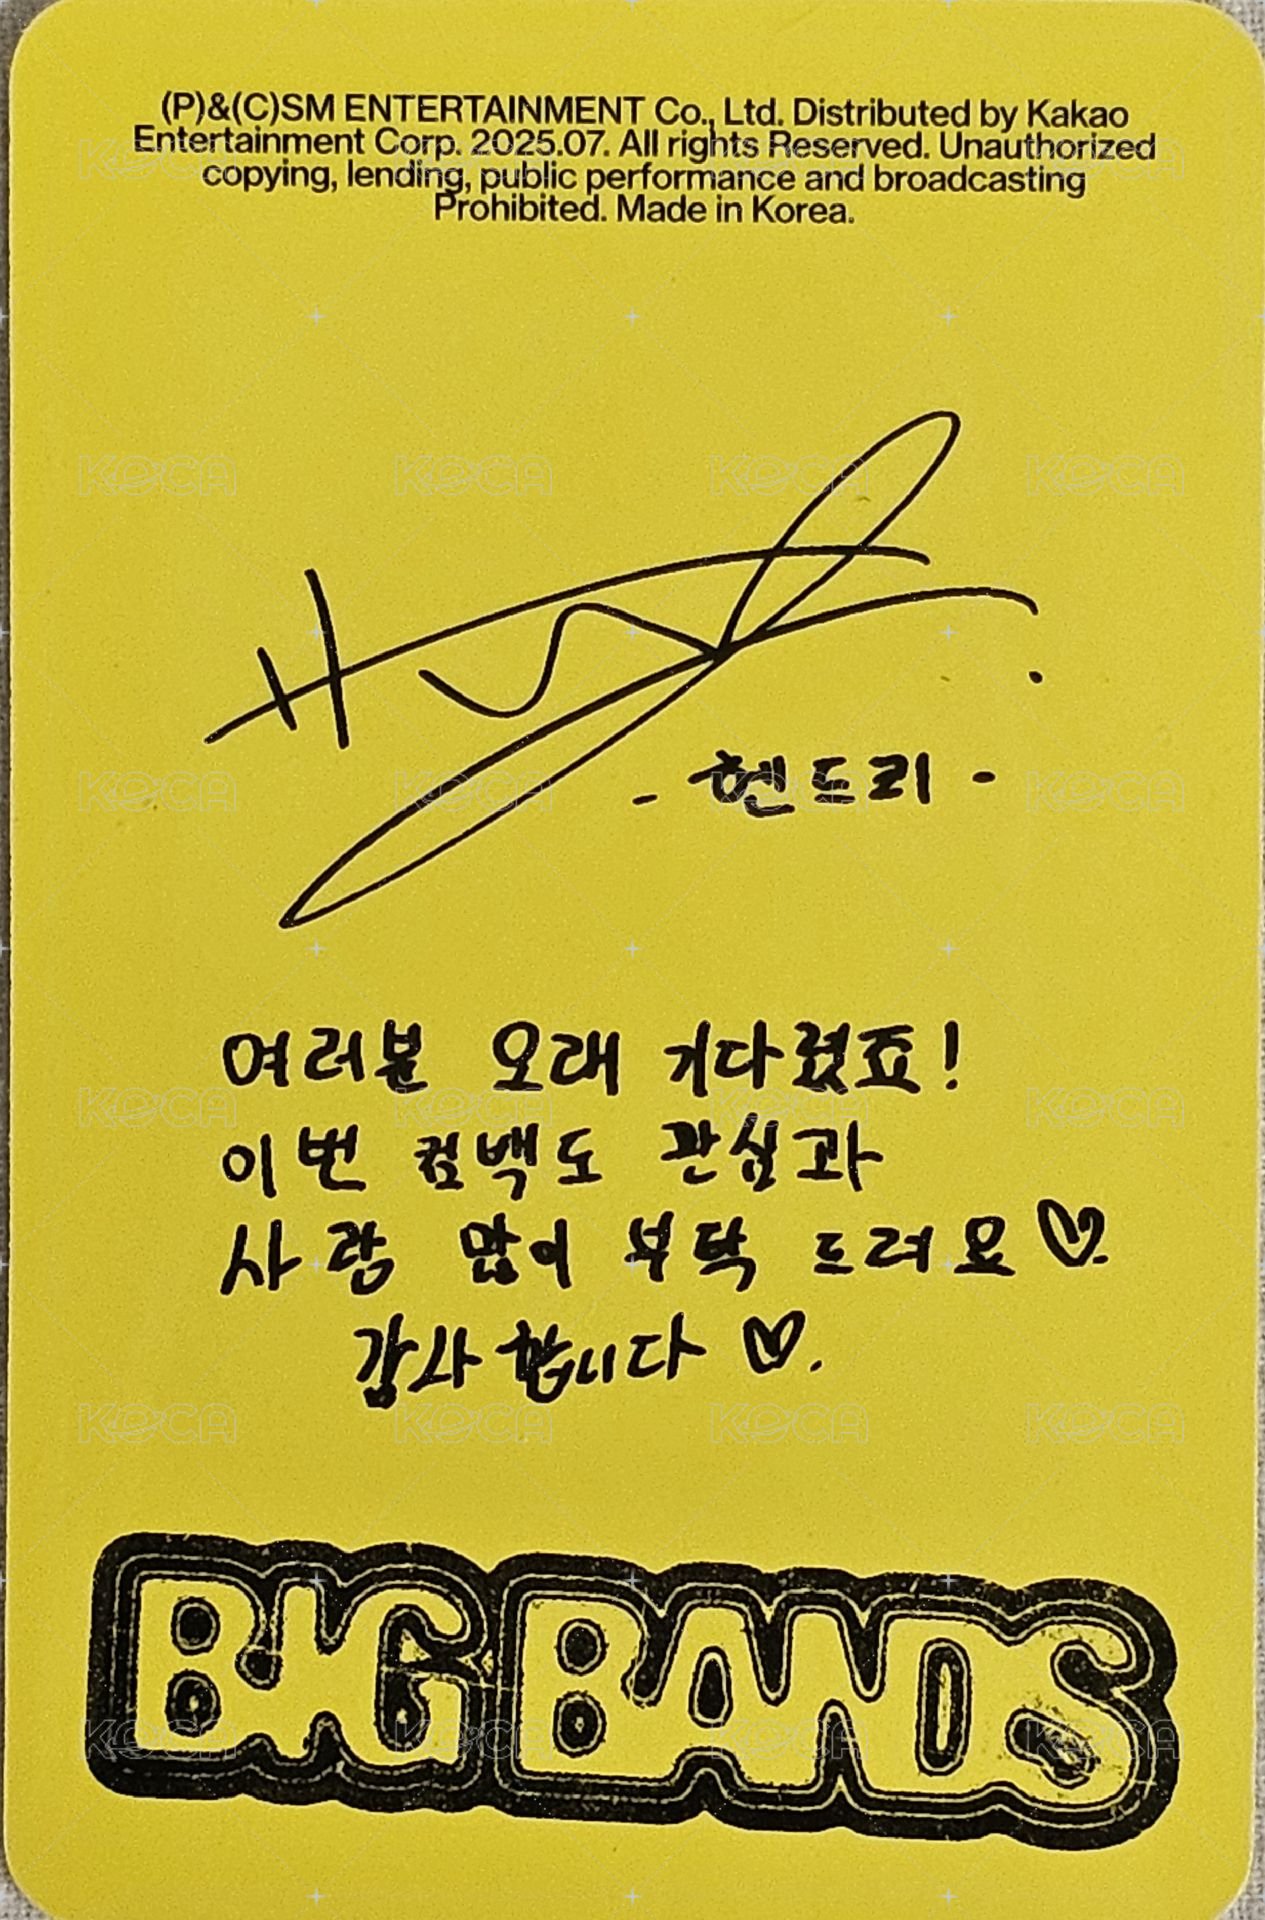 (P)&(C)SM ENTERTAINMENT Co., Ltd. Distributed by Kakao
Entertainment Corp. 2025.07. All rights Reserved. Unauthorized
copying, lending, public performance and broadcasting
Prohibited. Made in Korea.
- 헨드리 -
여러분 오래 기다렸죠!
이번 컴백도 관심과
사랑 많이 부탁 드려요♡.
감사합니다 ♡.
BIG BANDS
KOCA